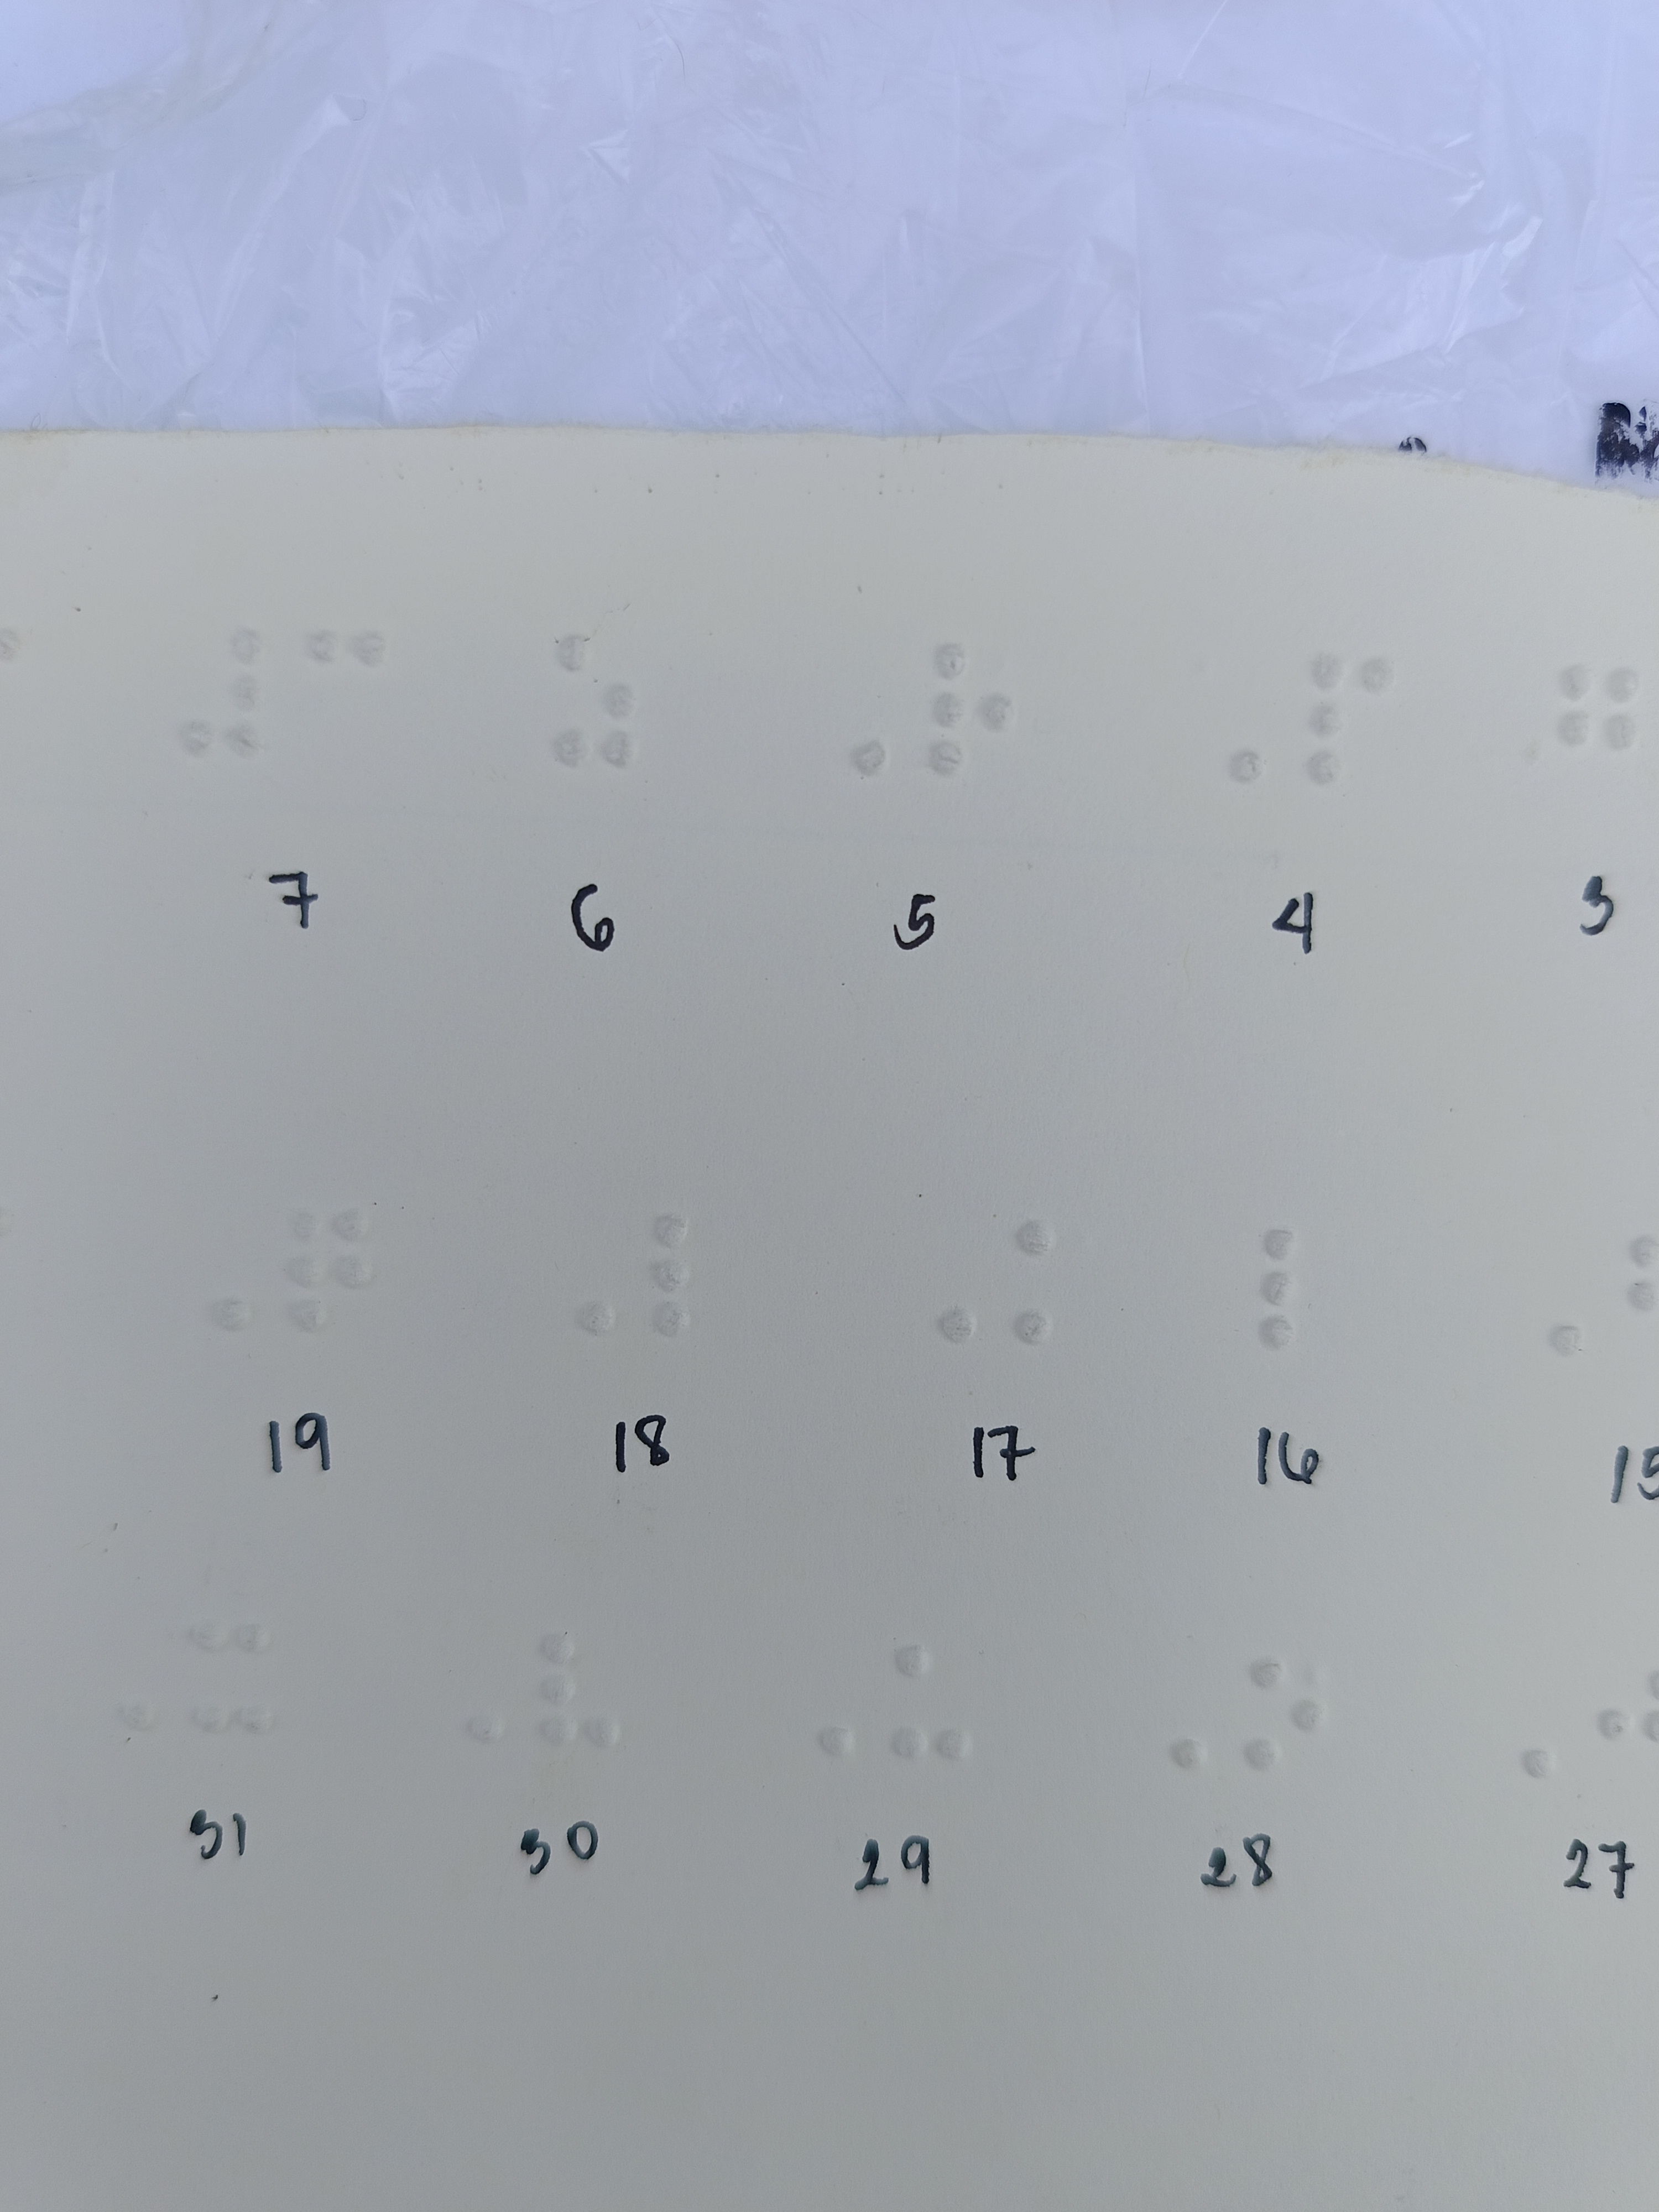 ⠼⠉ ⠵ ⠠⠗ ⠠⠏
7 6 5 4 3
⠠⠟ ⠠⠇ ⠠⠅ ⠇
19 18 17 16 15
⠠⠭ ⠠⠧ ⠠⠥ ⠠⠕
31 30 29 28 27